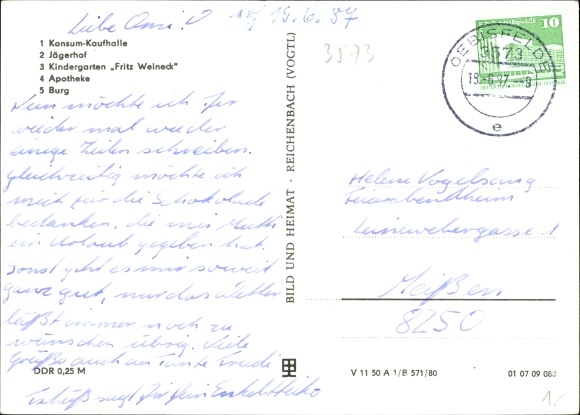 Liebe Omi!
19.6.87
3573
1 Konsum-Kaufhalle
2 Jägerhof
3 Kindergarten „Fritz Weineck"
4 Apotheke
5 Burg
Nun möchte ich Dir
wieder mal wieder
einige Zeilen schreiben.
Gleichzeitig möchte ich
mich für die Schokolade
bedanken, die mir Mutti
im Urlaub gegeben hat.
Sonst geht es mir soweit
ganz gut, nur das Wetter
läßt immer noch zu
wünschen übrig. Viele
Grüße auch an Tante Trudi
Tschüß sagt Dir Dein Enkel Heiko
DDR 0,25 M
BILD UND HEIMAT · REICHENBACH (VOGTL)
OEBISFELDE
3573
19.-6.87.--9
e
10
Helene Vogelsang
Feierabendheim
Leinewebergasse 1
Meißen
8250
V 11 50 A 1/B 571/80
01 07 09 083
1,-